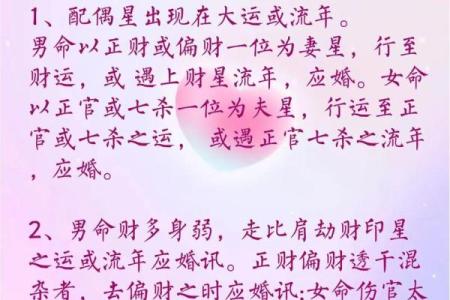 1、配偶星出现在大运或流年。
男命以正财或偏财一位为妻星，行至
财运，或 遇上财星流年，应婚。女命
以正官或七杀一位为夫星，行运至正
官或七杀之运， 或遇正官七杀之流年
，应婚。
2、男命财多身弱，走比肩劫财印星
之运或流年应婚讯。正财偏财透干混
杂者，去偏财之时应婚讯;女命伤官太